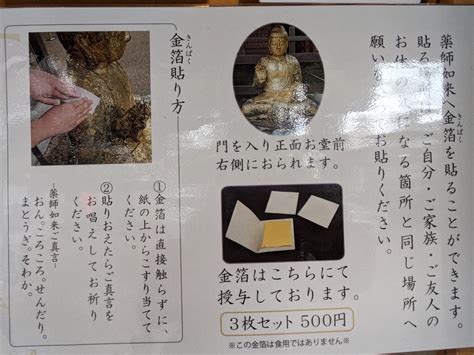 薬師如来へ金箔を貼ることができます。
きんぱく
貼る場所は、ご自分・ご家族・ご友人の
お体の気になる箇所と同じ場所へ
願いを込めてお貼りください。
門を入り正面お堂前
右側におられます。
金箔はこちらにて
授与しております。
3枚セット 500円
※この金箔は食用ではありません※
きんぱく
金箔貼り方
①金箔は直接触らずに、
紙の上からこすり当てて
ください。
②貼りおえたらご真言を
お唱えしてお祈り
ください。
薬師如来ご真言
おん。ころころ。せんだり。
まとうぎ。そわか。